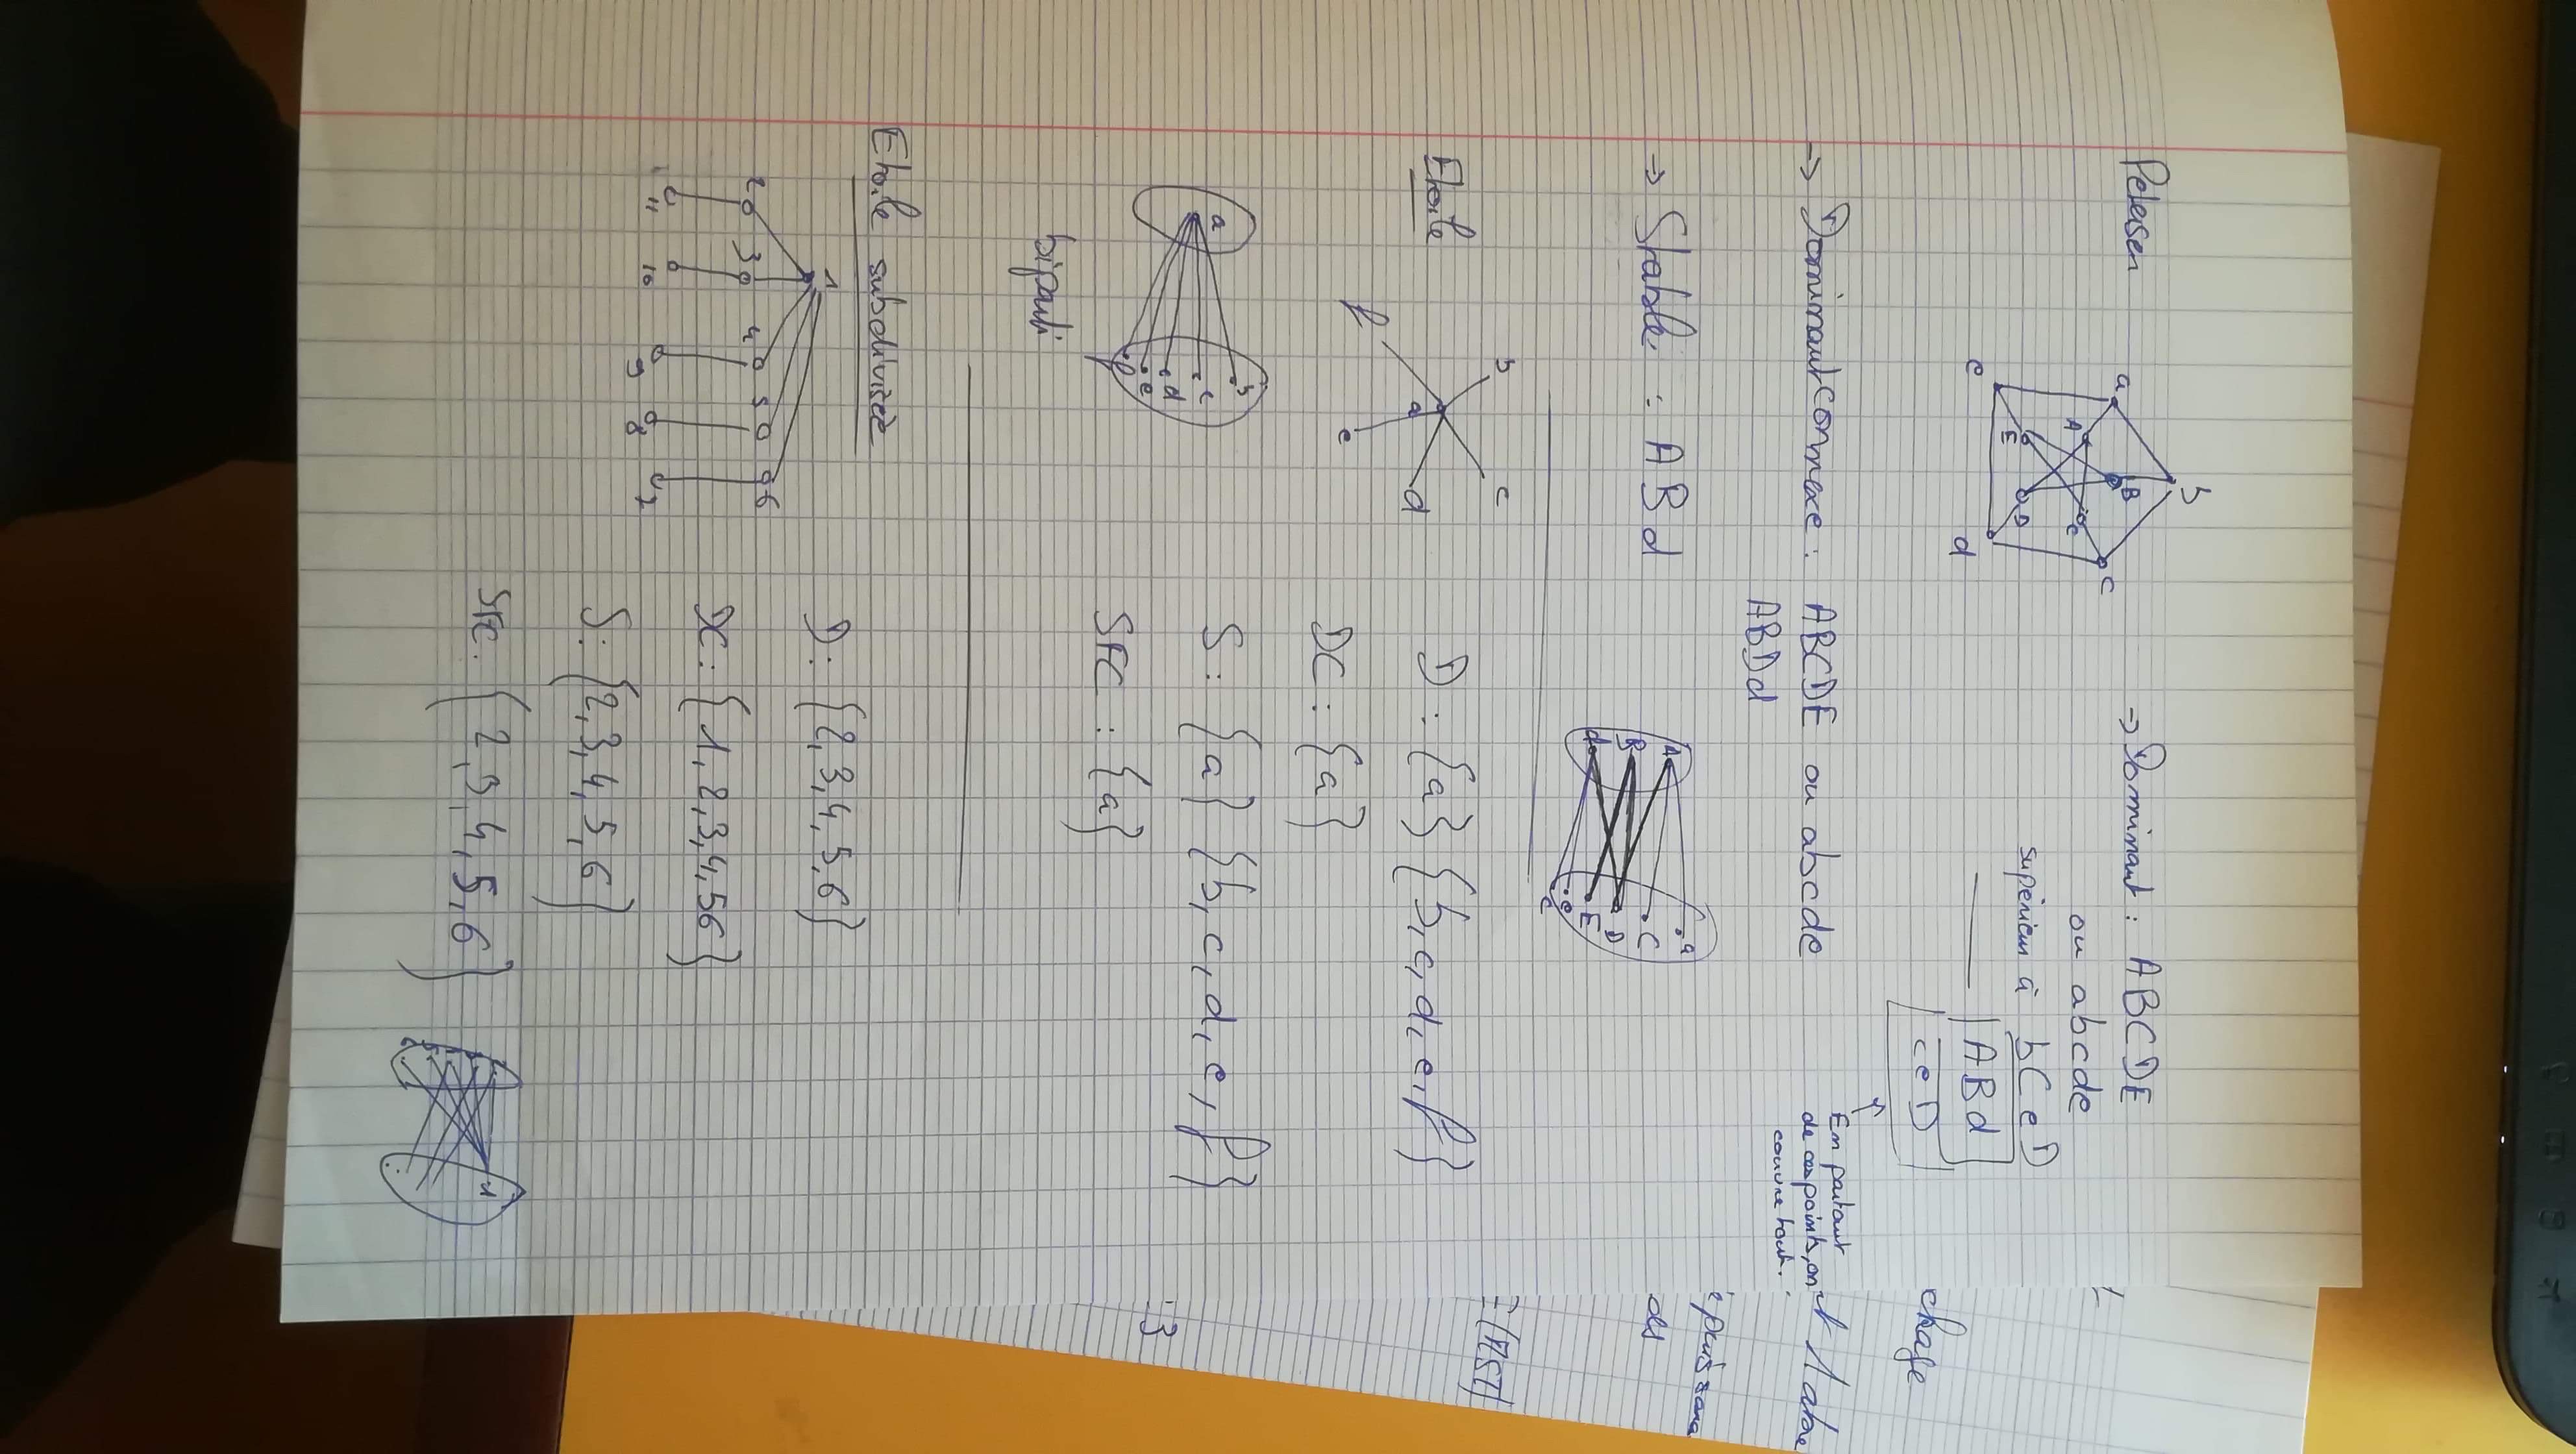 Petersen
b
a
B
c
A
C
E
D
e
d
→ Dominant : ABCDE
ou abcde
supérieur à bCeD
ABd
ceD
En partant
de ces points, on
couvre tout.
→ Dominant connexe : ABCDE ou abcde
ABDd
→ Stable : ABd
A
B
d
a
C
D
E
e
c
Etoile
b
c
a
d
f
e
D : {a} {b, c, d, e, f}
DC : {a}
a
b
c
d
e
f
biparti
S : {a} {b, c, d, e, f}
SFC : {a}
Etoile subdivisée
1
2 3 4 5 6
11 10 9 8 7
D : {2, 3, 4, 5, 6}
DC : {1, 2, 3, 4, 56}
S : {2, 3, 4, 5, 6}
SFC. {2, 3, 4, 5, 6}
1
chage
1 abre
ds
= (AST)
:3